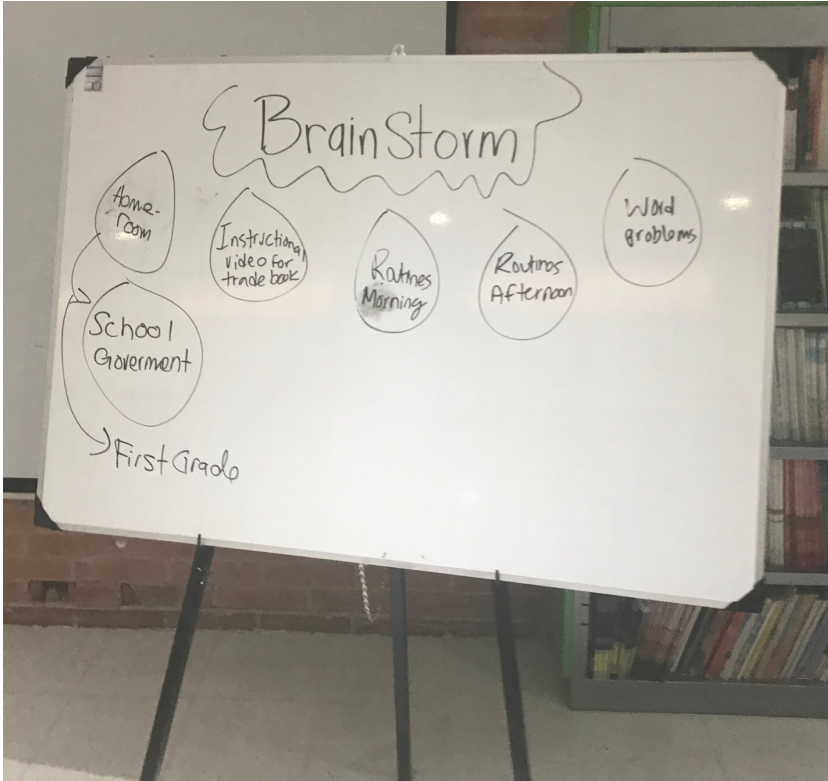 BrainStorm
Home-
room
Instructional
video for
trade book
Routines
Morning
Routines
Afternoon
Word
problems
School
Goverment
First Grade